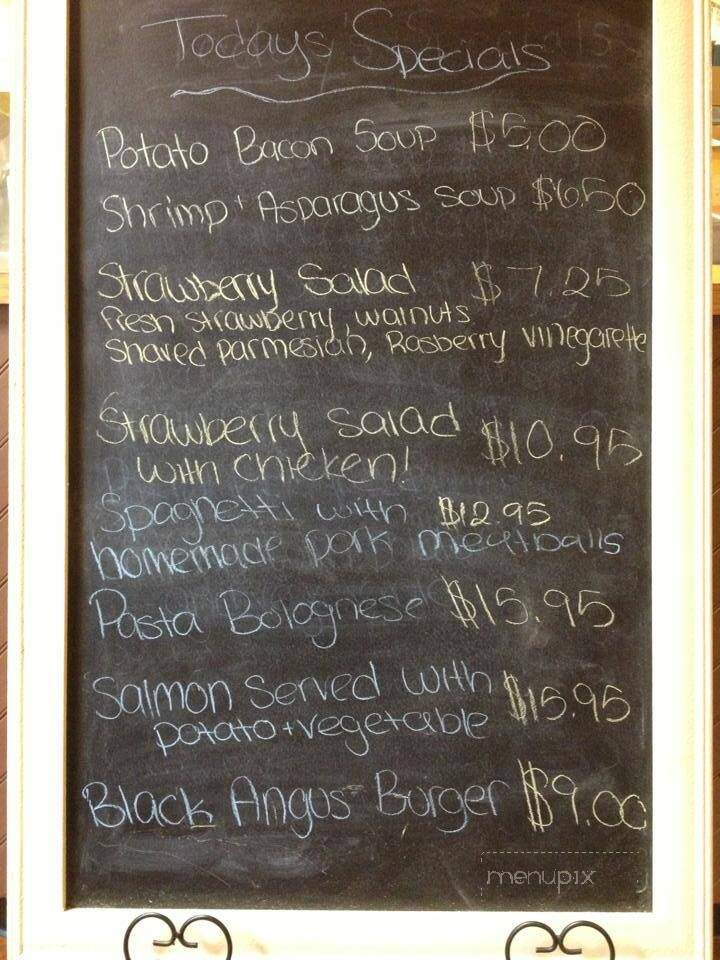 Todays Specials
Potato Bacon Soup $5.00
Shrimp + Asparagus Soup $6.50
Strawberry Salad $7.25
Fresh strawberry, walnuts
Shaved parmesian, Rasberry vinegarette
Strawberry Salad $10.95
with Chicken!
Spaghetti with $12.95
homemade pork meatballs
Pasta Bolognese $15.95
Salmon Served with $15.95
potato + vegetable
Black Angus Burger $9.00
menupix